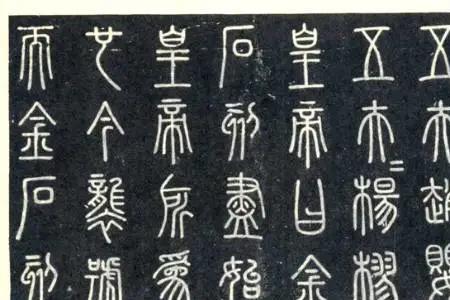 五夫趙嬰
五夫=楊樛
皇帝曰金
石刻盡始
皇帝所爲
也今襲號
而金石刻